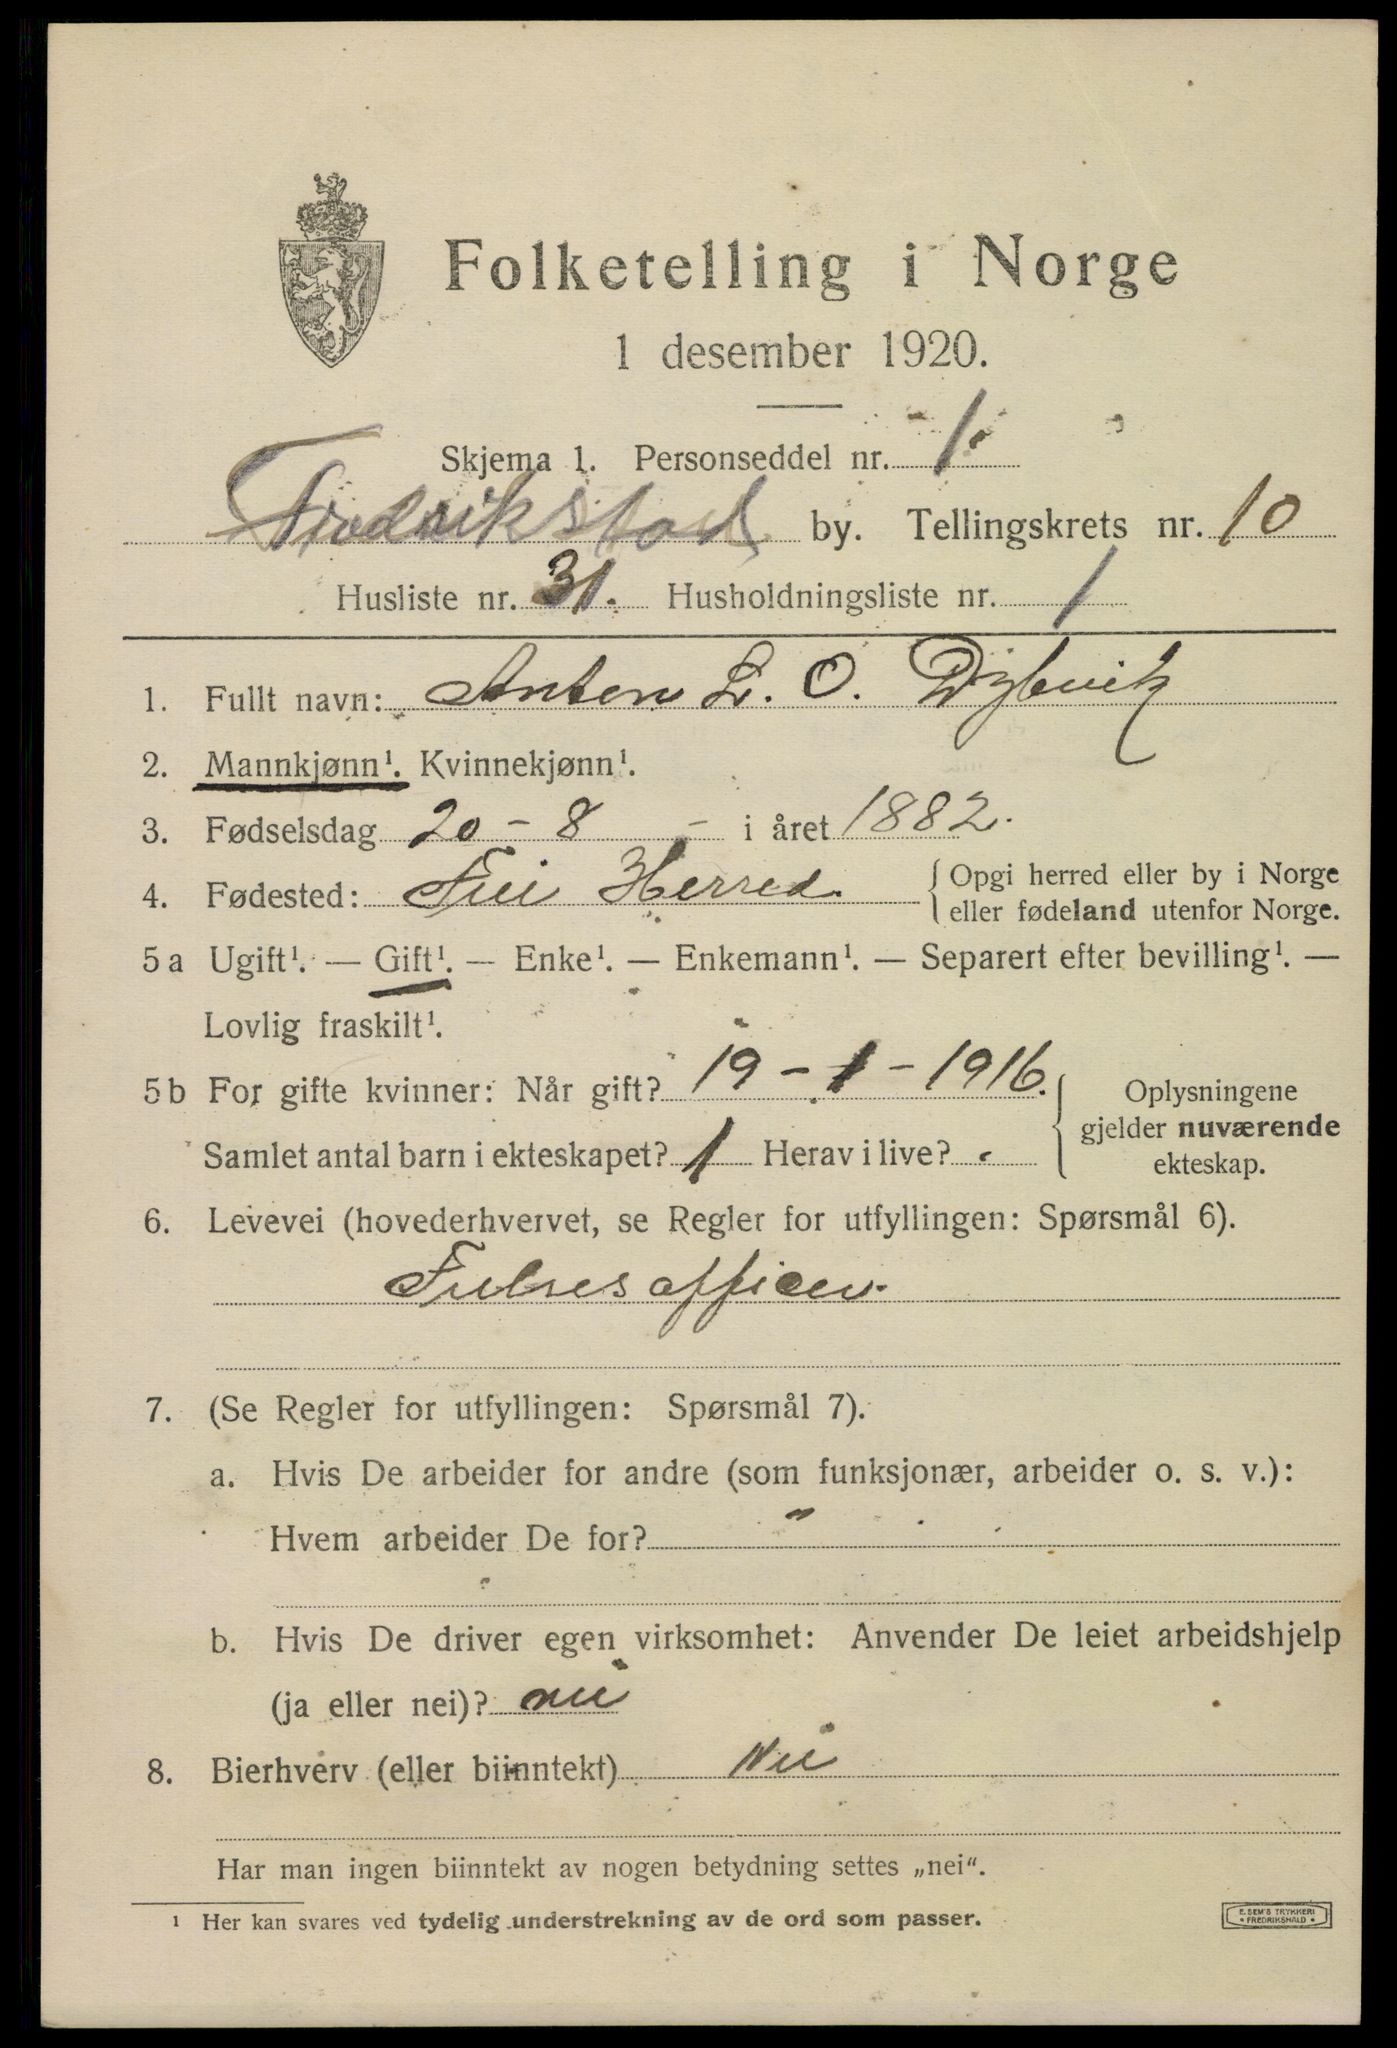 Folketelling i Norge
1 desember 1920.
Skjema 1. Personseddel nr. 1.
Fredrikstad by. Tellingskrets nr. 10
Husliste nr. 31. Husholdningsliste nr. 1
1. Fullt navn: Anton L. O. Dybvik
2. Mannkjønn¹. Kvinnekjønn¹.
3. Fødselsdag 20 - 8 - i året 1882.
4. Fødested: Frei Herred. { Opgi herred eller by i Norge
eller fødeland utenfor Norge.
5 a Ugift¹. — Gift¹. — Enke¹. — Enkemann¹. — Separert efter bevilling¹. —
Lovlig fraskilt¹.
5 b For gifte kvinner: Når gift? 19 - 1 - 1916. { Oplysningene
gjelder nuværende
Samlet antal barn i ekteskapet? 1 Herav i live? .
ekteskap.
6. Levevei (hovederhvervet, se Regler for utfyllingen: Spørsmål 6).
Frelsesofficer.
7. (Se Regler for utfyllingen: Spørsmål 7).
a. Hvis De arbeider for andre (som funksjonær, arbeider o. s. v.):
Hvem arbeider De for?
b. Hvis De driver egen virksomhet: Anvender De leiet arbeidshjelp
(ja eller nei)? nei
8. Bierhverv (eller biinntekt) Nei
Har man ingen biinntekt av nogen betydning settes „nei“.
¹ Her kan svares ved tydelig understrekning av de ord som passer.
E. SEM'S TRYKKERI
• FREDRIKSHALD •